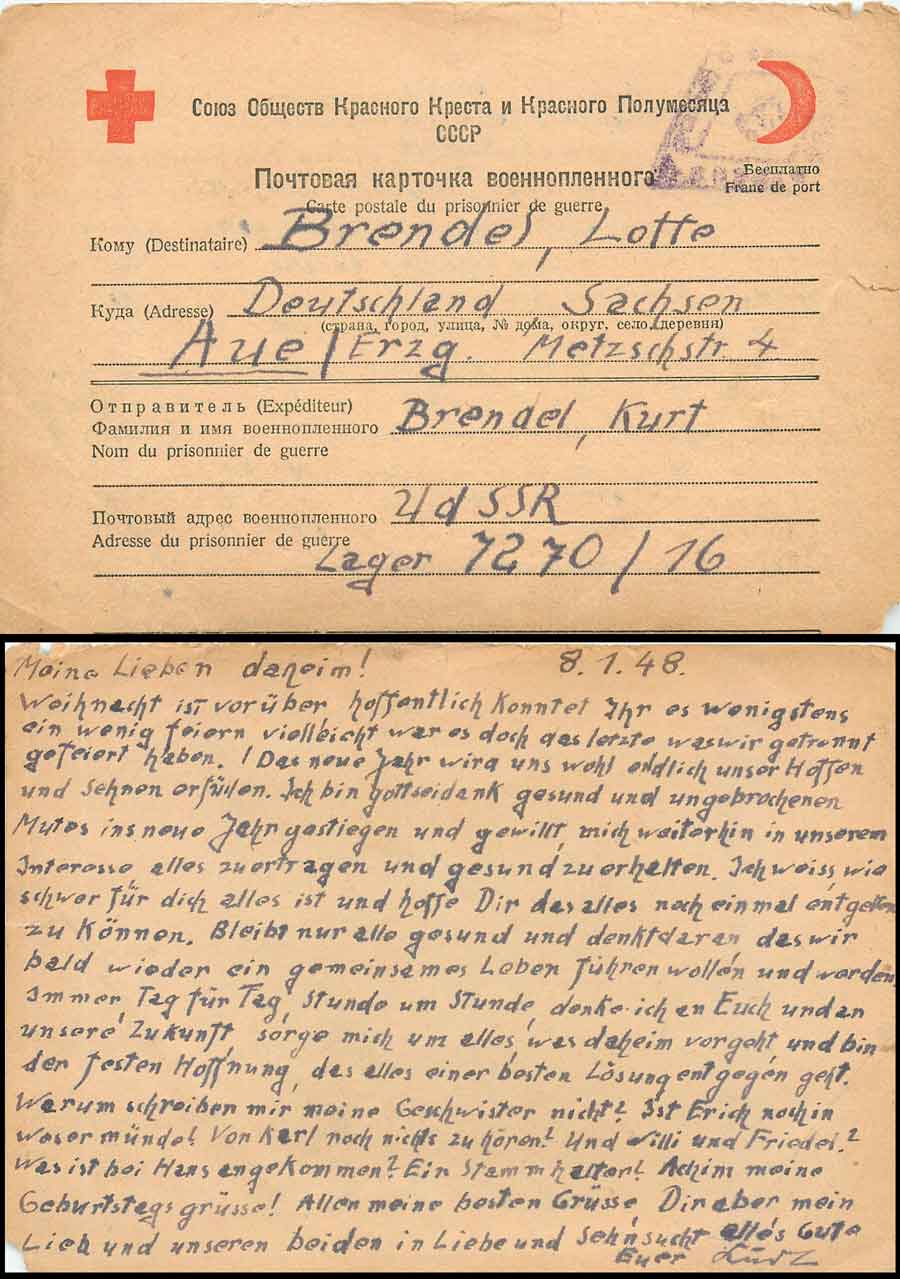 Союз Обществ Красного Креста и Красного Полумесяца
СССР
Почтовая карточка военнопленного
Бесплатно
Franc de port
Carte postale du prisonnier de guerre
Кому (Destinataire) Brendel, Lotte
Куда (Adresse) Deutschland Sachsen
(страна, город, улица, № дома, округ, село, деревня)
Aue / Erzg. Metzschstr 4
Отправитель (Expéditeur)
Фамилия и имя военнопленного Brendel, Kurt
Nom du prisonnier de guerre
Почтовый адрес военнопленного UdSSR
Adresse du prisonnier de guerre
Lager 7270/16
Meine Lieben daheim! 8.1.48.
Weihnacht ist vorüber hoffentlich konntet Ihr es wenigstens
ein wenig feiern vielleicht war es doch das letzte was wir getrennt
gefeiert haben.! Das neue Jahr wird uns wohl endlich unser Hoffen
und Sehnen erfüllen. Ich bin gottseidank gesund und ungebrochenen
Mutes ins neue Jahr gestiegen und gewillt, mich weiterhin in unserem
Interesse alles zu ertragen und gesund zu erhalten. Ich weiss, wie
schwer für dich alles ist und hoffe Dir das alles noch einmal entgelten
zu können. Bleibt nur alle gesund und denkt daran das wir
bald wieder ein gemeinsames Leben führen wollen und werden
Immer, Tag für Tag, Stunde um Stunde, denke ich an Euch und an
unsere Zukunft, sorge mich um alles, was daheim vorgeht, und bin
der festen Hoffnung, das alles einer besten Lösung entgegen geht.
Warum schreiben mir meine Geschwister nicht? Ist Erich noch in
Wesermünde? Von Karl noch nichts zu hören? Und Willi und Friedel?
Was ist bei Hans angekommen? Ein Stammhalter? Achim meine
Geburtstagsgrüsse! Allen meine besten Grüsse, Dir aber mein
Lieb und unseren beiden in Liebe und Sehnsucht alles Gute
Euer Kurt